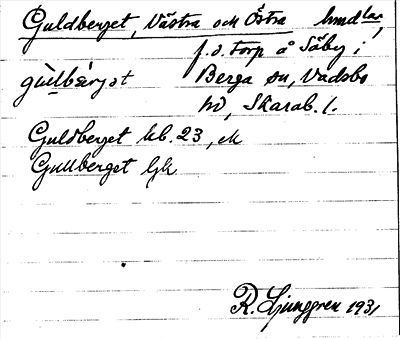 Guldberget, Västra och Östra hmdlar,
f.d. torp å Säby i
gùlbä̀rjət Berga sn, Vadsbo
hd, Skarab. l.
Guldberget kb. 23, ek
Gullberget Gk
R. Ljunggren 1931